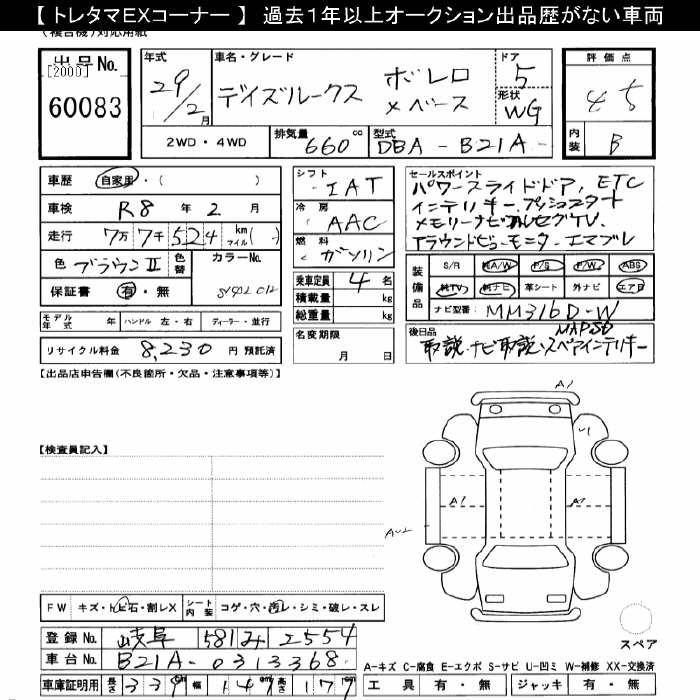 【 トレタマEXコーナー 】 過去1年以上オークション出品歴がない車両
(複合機)対応用紙
出品No.
[2000]
60083
年式
29/2月
車名・グレード
デイズルークス ボレロ
×ベース
ドア
5
形状
WG
評価点
4.5
内装
B
2WD・4WD
排気量 660 cc
型式 DBA - B21A -
車歴 自家用・( )
車検 R8 年 2 月
走行 7万 7千 524 km マイル( )
色 ブラウンII 色替 カラーNo.
保証書 有・無
モデル年式 年 ハンドル 左・右 ディーラー・並行
リサイクル料金 8,230 円 預託済
シフト IAT
冷房 AAC
燃料 ガソリン
乗車定員 4 名
積載量 kg
総重量 kg
名変期限
月 日
セールスポイント
パワースライドドア, ETC
インテリキー, プッシュスタート
メモリーナビ フルセグTV
アラウンドビューモニター エマブレ
装備品
S/R A/W P/S P/W ABS
純TV 純ナビ 革シート 外ナビ エアB
ナビ型番: MM316D-W
後日品
取説・ナビ取説・スペアインテリキー
【出品店申告欄(不良箇所・欠品・注意事項等)】
【検査員記入】
A1
U1
A1
FW キズ・トビ石・割レX シート内装 コゲ・穴・汚レ・シミ・破レ・スレ
登録No. 岐阜 581 み 2554
車台No. B21A-0313368
車庫証明用 長さ 339cm 幅 147cm 高さ 177cm
スペア
A-キズ C-腐食 E-エクボ S-サビ U-凹ミ W-補修 XX-交換済
工具 有・無 ジャッキ 有・無